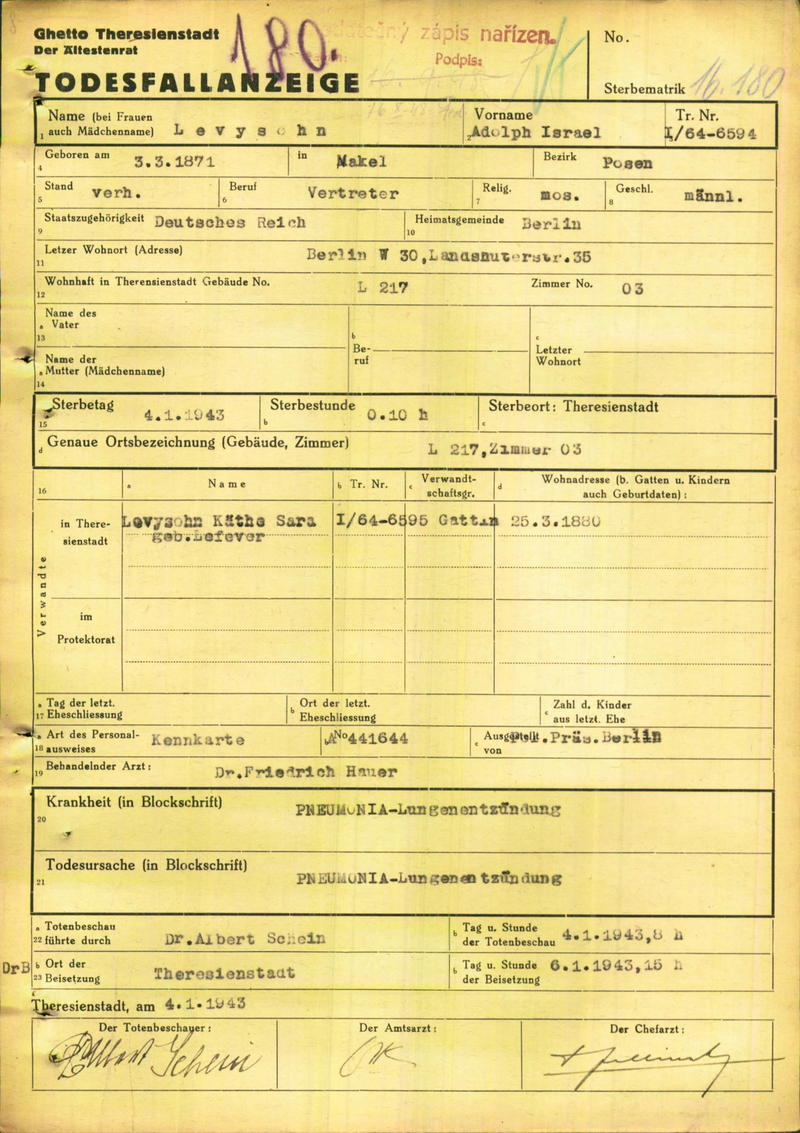 Ghetto Theresienstadt
Der Ältestenrat
TODESFALLANZEIGE
180.
zápis nařízen.
Podpis:
No.
Sterbematrik 16.180
1 Name (bei Frauen auch Mädchenname) Levysohn
Vorname Adolph Israel
Tr. Nr. I/64-6594
4 Geboren am 3.3.1871
in Makel
Bezirk Posen
5 Stand verh.
6 Beruf Vertreter
7 Relig. mos.
8 Geschl. männl.
9 Staatszugehörigkeit Deutsches Reich
10 Heimatsgemeinde Berlin
11 Letzer Wohnort (Adresse) Berlin W 30,Landshuterstr.35
12 Wohnhaft in Therensienstadt Gebäude No. L 217
Zimmer No. 03
13 Name des
a Vater
14 Name der
a Mutter (Mädchenname)
b Be-
ruf
c Letzter
Wohnort
15 Sterbetag 4.1.1943
b Sterbestunde 0.10 h
c Sterbeort: Theresienstadt
d Genaue Ortsbezeichnung (Gebäude, Zimmer) L 217,Zimmer 03
16
a Name
b Tr. Nr.
c Verwandt-
schaftsgr.
d Wohnadresse (b. Gatten u. Kindern
auch Geburtdaten) :
Verwandte
in There-
sienstadt
Levysohn Käthe Sara I/64-6595 Gattin 25.3.1880
geb.Lefever
im
Protektorat
17 a Tag der letzt.
Eheschliessung
b Ort der letzt.
Eheschliessung
c Zahl d. Kinder
aus letzt. Ehe
18 a Art des Personal-
ausweises Kennkarte
No 441644
c Ausgestellt
von .Präs.Berlin
19 Behandelnder Arzt : Dr.Friedrich Hauer
20 Krankheit (in Blockschrift) PNEUMONIA-Lungenentzündung
21 Todesursache (in Blockschrift) PNEUMONIA-Lungenentzündung
22 a Totenbeschau
führte durch Dr.Albert Schein
b Tag u. Stunde
der Totenbeschau 4.1.1943,8 h
DrB
23 b Ort der
Beisetzung Theresienstadt
b Tag u. Stunde
der Beisetzung 6.1.1943,15 h
c
Theresienstadt, am 4.1.1943
Der Totenbeschauer :
Der Amtsarzt :
Der Chefarzt :
Albert Schein